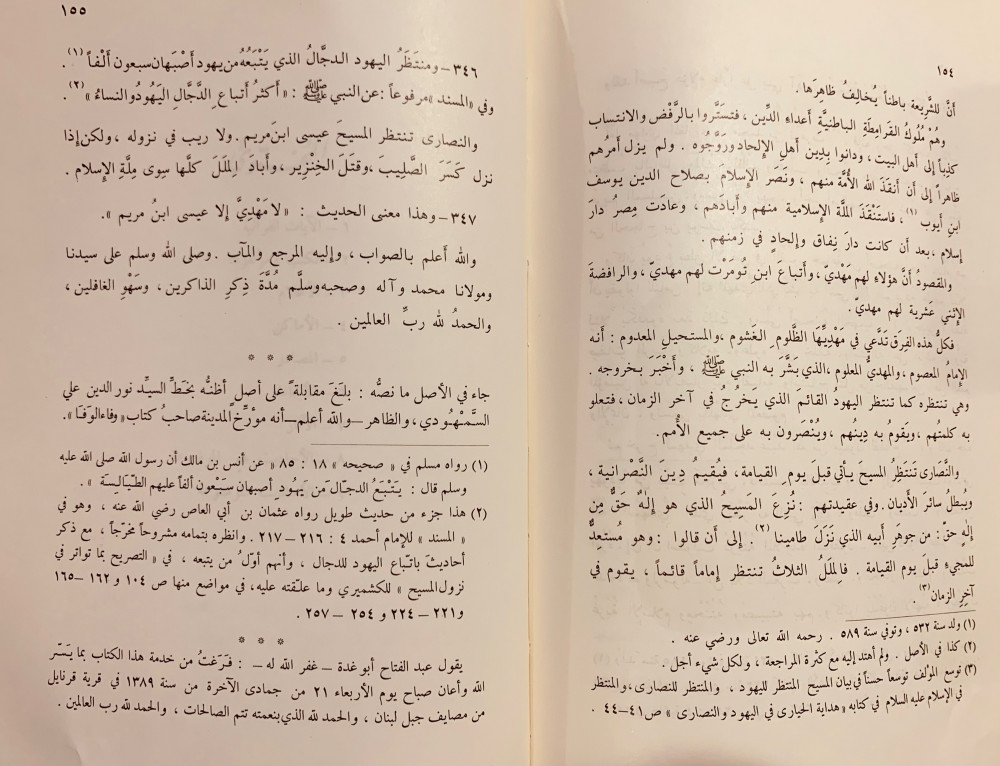 ١٥٤
أنَّ للشَّريعة باطناً يُخالِفُ ظاهِرَها .
وهُمْ مُلُوكُ القَرامِطَةِ الباطنيَّةِ أعداء الدِّين ، فتسَتَّروا بالرَّفْض والانتساب
كذِباً إلى أهل البيت ، ودانوا بِدِين أهلِ الإلحاد ورَوَّجُوه . ولم يزل أمرُهم
ظاهراً إلى أن أنقَذَ الله الأُمَّة منهم ، ونَصَر الإسلامَ بصلاح الدين يوسف
ابنِ أيوب (١) ، فاستَنْقَذَ الملَّة الإسلامية منهم وأبادَهم ، وعادَت مِصرُ دارَ
إسلام ، بعد أن كانت دارَ نِفاق وإلحادٍ في زمنهم .
والمقصودُ أنَّ هؤلاءِ لهم مَهْديّ ، وأتباعَ ابنِ تُومَرْت لهم مهديّ ، والرافضةَ
الإثني عَشرية لهم مهديّ .
فكلُّ هذه الفِرَق تَدَّعي في مَهْدِيِّهَا الظَّلومِ الغَشوم ، والمستحيلِ المعدوم : أنه
الإمامُ المعصوم ، والمهديُّ المعلوم ، الذي بَشَّرَ به النبي ﷺ ، وأخْبَرَ بخروجه .
وهي تنتظره كما تنتظر اليهودُ القائم الذي يَخرُجُ في آخر الزمان ، فتعلو
به كلمتُهم ، ويَقومُ به دِينُهم ، ويُنْصَرون به على جميع الأُمم .
والنَّصَارى تَنتَظِرُ المسيحَ يأتي قبلَ يومِ القيامة ، فيُقيمُ دِينَ النَّصْرانية ،
ويُبطلُ سائرَ الأديان . وفي عقيدتهم : نُزِعَ المَسِيحُ الذي هو إلهٌ حَقٌّ مِن
إلهٍ حقٍّ : من جوهَرِ أبيه الذي نَزَلَ طامينا (٢) . إلى أن قالوا : وهو مُستعِدٌّ
للمجيءِ قبلَ يوم القيامة . فالمِلَلُ الثلاثُ تنتظر إماماً قائماً ، يقوم في
آخِرِ الزمان (٣) .
(١) ولد سنة ٥٣٢ ، وتوفي سنة ٥٨٩ . رحمه الله تعالى ورضي عنه .
(٢) كذا في الأصل . ولم أهتدِ إليه مع كثرة المراجعة ، ولكل شيء أجل .
(٣) توسع المؤلف توسعاً حسناً في بيان المسيح المنتظر لليهود ، والمنتظر للنصارى ، والمنتظر
في الإسلام عليه السلام في كتابه « هداية الحيارى في اليهود والنصارى » ص ٤١–٤٤ .
١٥٥
٣٤٦ – ومنتَظَرُ اليهود الدجَّالُ الذي يَتْبَعُهُ من يهود أَصْبَهان سبعون ألفاً (١) .
وفي « المسند » مرفوعاً : عن النبي ﷺ : « أكثرُ أتباعِ الدَّجَّالِ اليَهُودُ والنساءُ » (٢) .
والنصارى تنتظر المسيحَ عيسى ابنَ مريم . ولا ريب في نزوله ، ولكن إذا
نزل كَسَرَ الصَّلِيبَ ، وقتَلَ الخِنْزير ، وأبادَ المِلَلَ كلَّها سِوى مِلَّةِ الإسلام .
٣٤٧ – وهذا معنى الحديث : « لا مَهْدِيَّ إلا عيسى ابنُ مريم » .
والله أعلم بالصواب ، وإليه المرجع والمآب . وصلى الله وسلم على سيدنا
ومولانا محمد وآله وصحبه وسلَّم مُدَّةَ ذِكرِ الذاكرين ، وسَهْوِ الغافلين ،
والحمدُ لله ربِّ العالمين .
* * *
جاء في الأصل ما نصُّه : بلغَ مقابلةً على أصلٍ أظنُّه بخَطِّ السيِّد نور الدين علي
السَّمْهُودي ، والظاهر – والله أعلم – أنه مؤرِّخ المدينة صاحبُ كتاب « وفاء الوَفا » .
(١) رواه مسلم في « صحيحه » ١٨ : ٨٥ عن أنس بن مالك أن رسول الله صلى الله عليه
وسلم قال : يَتْبَعُ الدجّالَ من يَهُودِ أصبهان سَبْعون ألفاً عليهم الطَّيَالِسة » .
(٢) هذا جزء من حديث طويل رواه عثمان بن أبي العاص رضي الله عنه ، وهو في
« المسند » للإمام أحمد ٤ : ٢١٦ – ٢١٧ . وانظره بتمامه مشروحاً مخرّجاً ، مع ذكر
أحاديثَ باتّباع اليهود للدجال ، وأنهم أوّلُ من يتبعه ، في « التصريح بما تواتر في
نزول المسيح » للكشميري وما علّقته عليه ، في مواضع منها ص ١٠٤ و ١٦٢ – ١٦٥
و ٢٢١ – ٢٢٤ و ٢٥٤ – ٢٥٧ .
* * *
يقول عبد الفتاح أبو غدة – غفر الله له – : فَرَغتُ من خدمة هذا الكتاب بما يَسّر
الله وأعان صباح يوم الأربعاء ٢١ من جمادى الآخرة من سنة ١٣٨٩ في قرية قرنايل
من مصايف جبل لبنان ، والحمد لله الذي بنعمته تتم الصالحات ، والحمد لله رب العالمين .